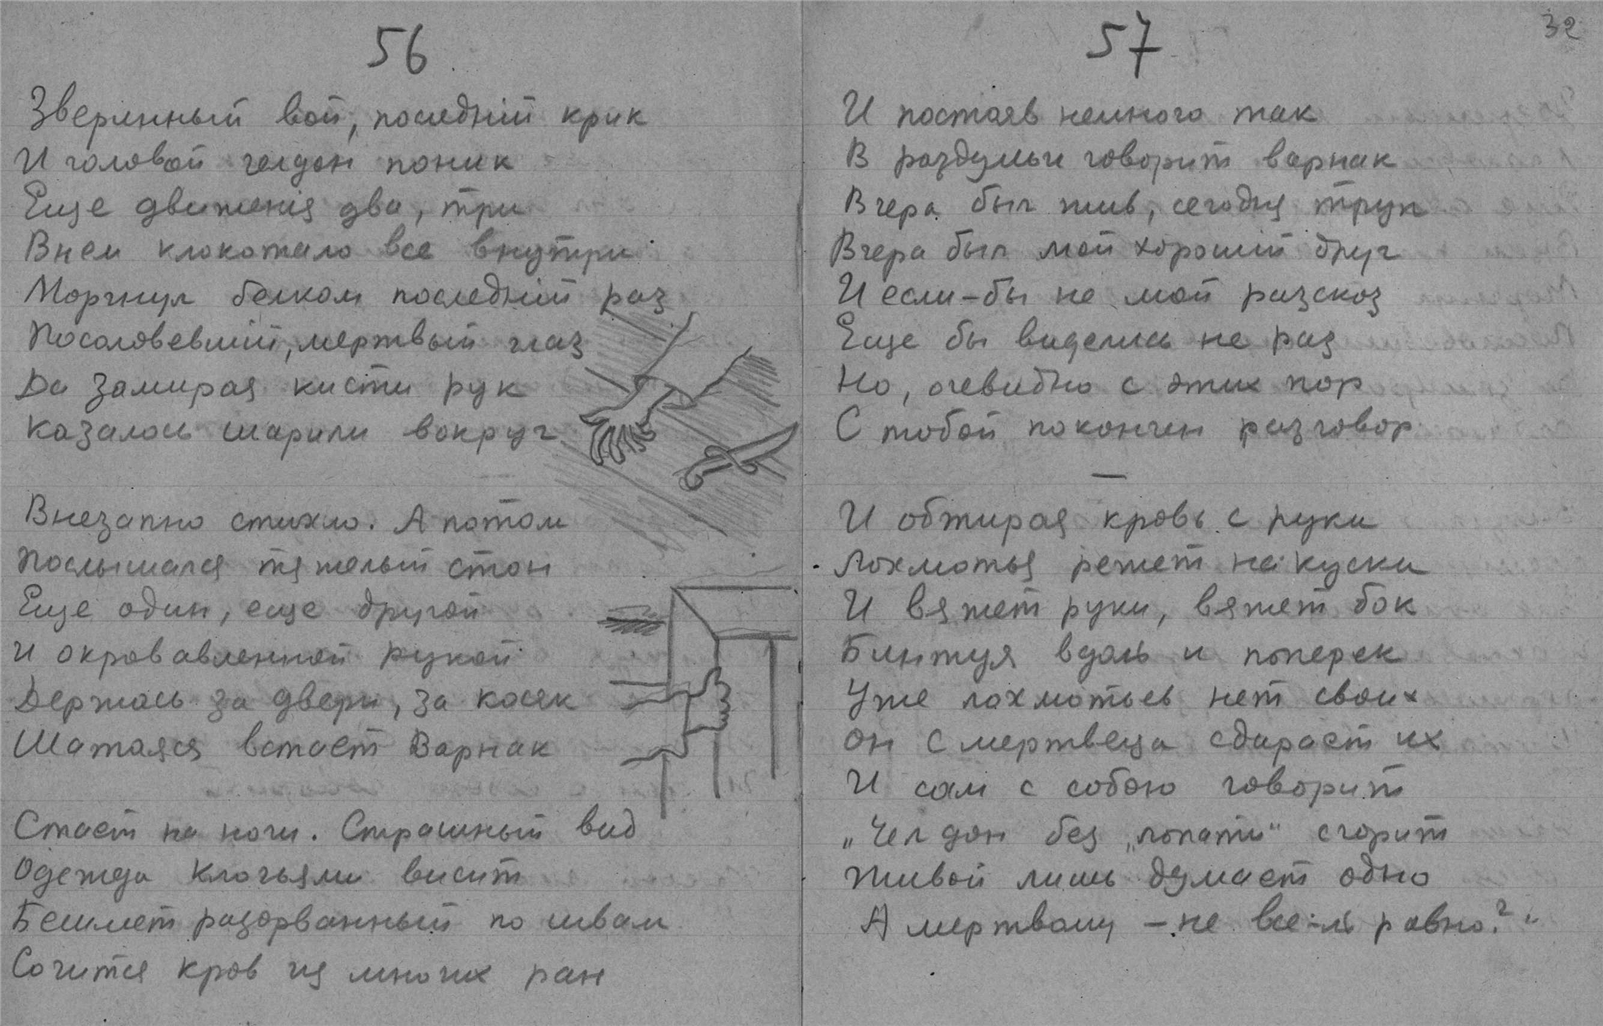 56
Зверинный вой, последній крик
И головой челдон поник
Еще движенія два, три
Внем клокотало все внутри
Моргнул белком последній раз
Посоловевший, мертвый глаз
Да замирая кисти рук
Казалось шарили вокруг
Внезапно стихло. А потом
Послышался тяжелый стон
Еще один, еще другой
И окровавленной рукой
Держась за двери, за косяк
Шатаяся встает Варнак
Стает на ноги. Страшный вид
Одежда клочьями висит
Бешмет разорванный по швам
Сочится кров из многих ран
57
32
И постояв немного так
В раздумьи говорит варнак
Вчера был жив, сегодня труп
Вчера был мой хороший друг
И если-бы не мой разсказ
Еще бы виделись не раз
Но, очевидно с этих пор
С тобой покончен разговор
—
И обтирая кровь с руки
Лохмотья режет на куски
И вяжет руки, вяжет бок
Бинтуя вдоль и поперек
Уже лохмотьев нет своих
Он с мертвеца сдирает их
И сам с собою говорит
„Челдон без „лопати“ сгорит
Живой лишь думает одно
А мертвому – не все-ль равно?“